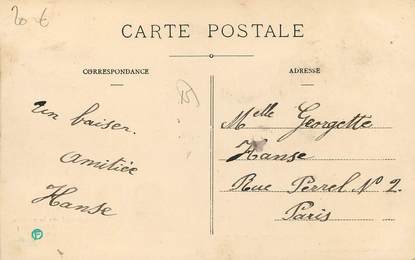 20 €
CARTE POSTALE
CORRESPONDANCE
ADRESSE
Un baiser.
Amitiée
Hanse
Melle Georgette
Hanse
Rue Perrel Nº 2.
Paris